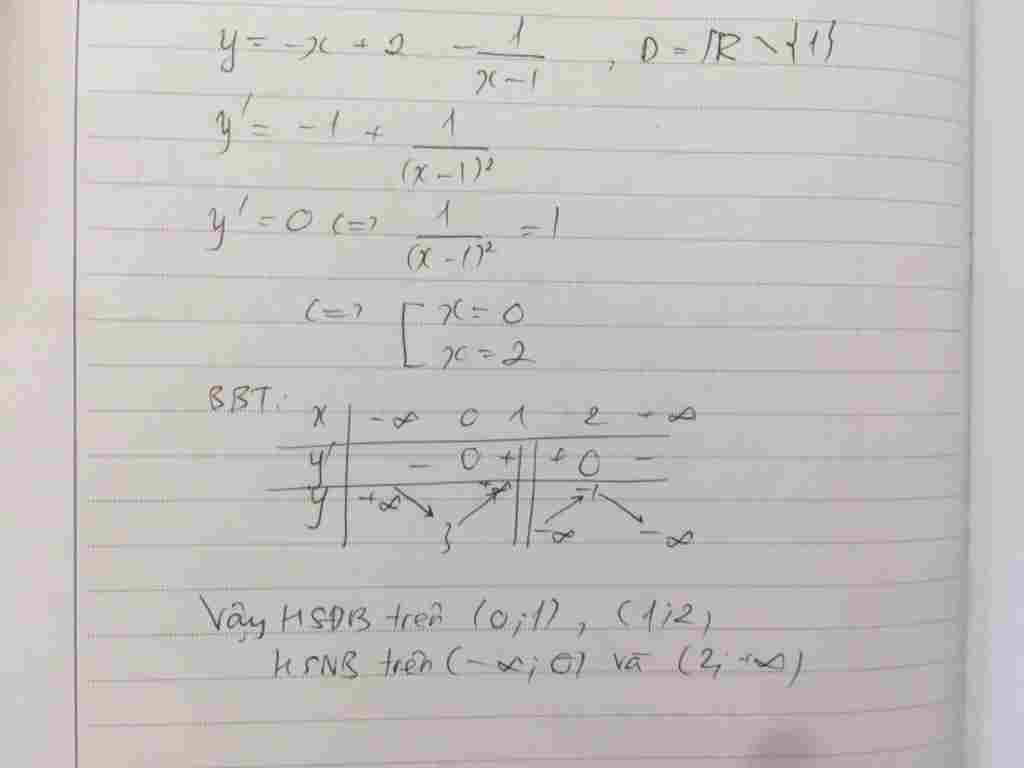 y = -x + 2 - 1/(x-1) , D = ℝ \ {1}
y' = -1 + 1/(x-1)²
y' = 0 <=> 1/(x-1)² = 1
<=> [ x = 0
x = 2
BBT:
x | -∞ 0 1 2 +∞
y' | - 0 + || + 0 -
y | +∞ ↘ 3 ↗ +∞ || -∞ ↗ -1 ↘ -∞
Vậy HSĐB trên (0;1), (1;2)
HSNB trên (-∞; 0) và (2; +∞)